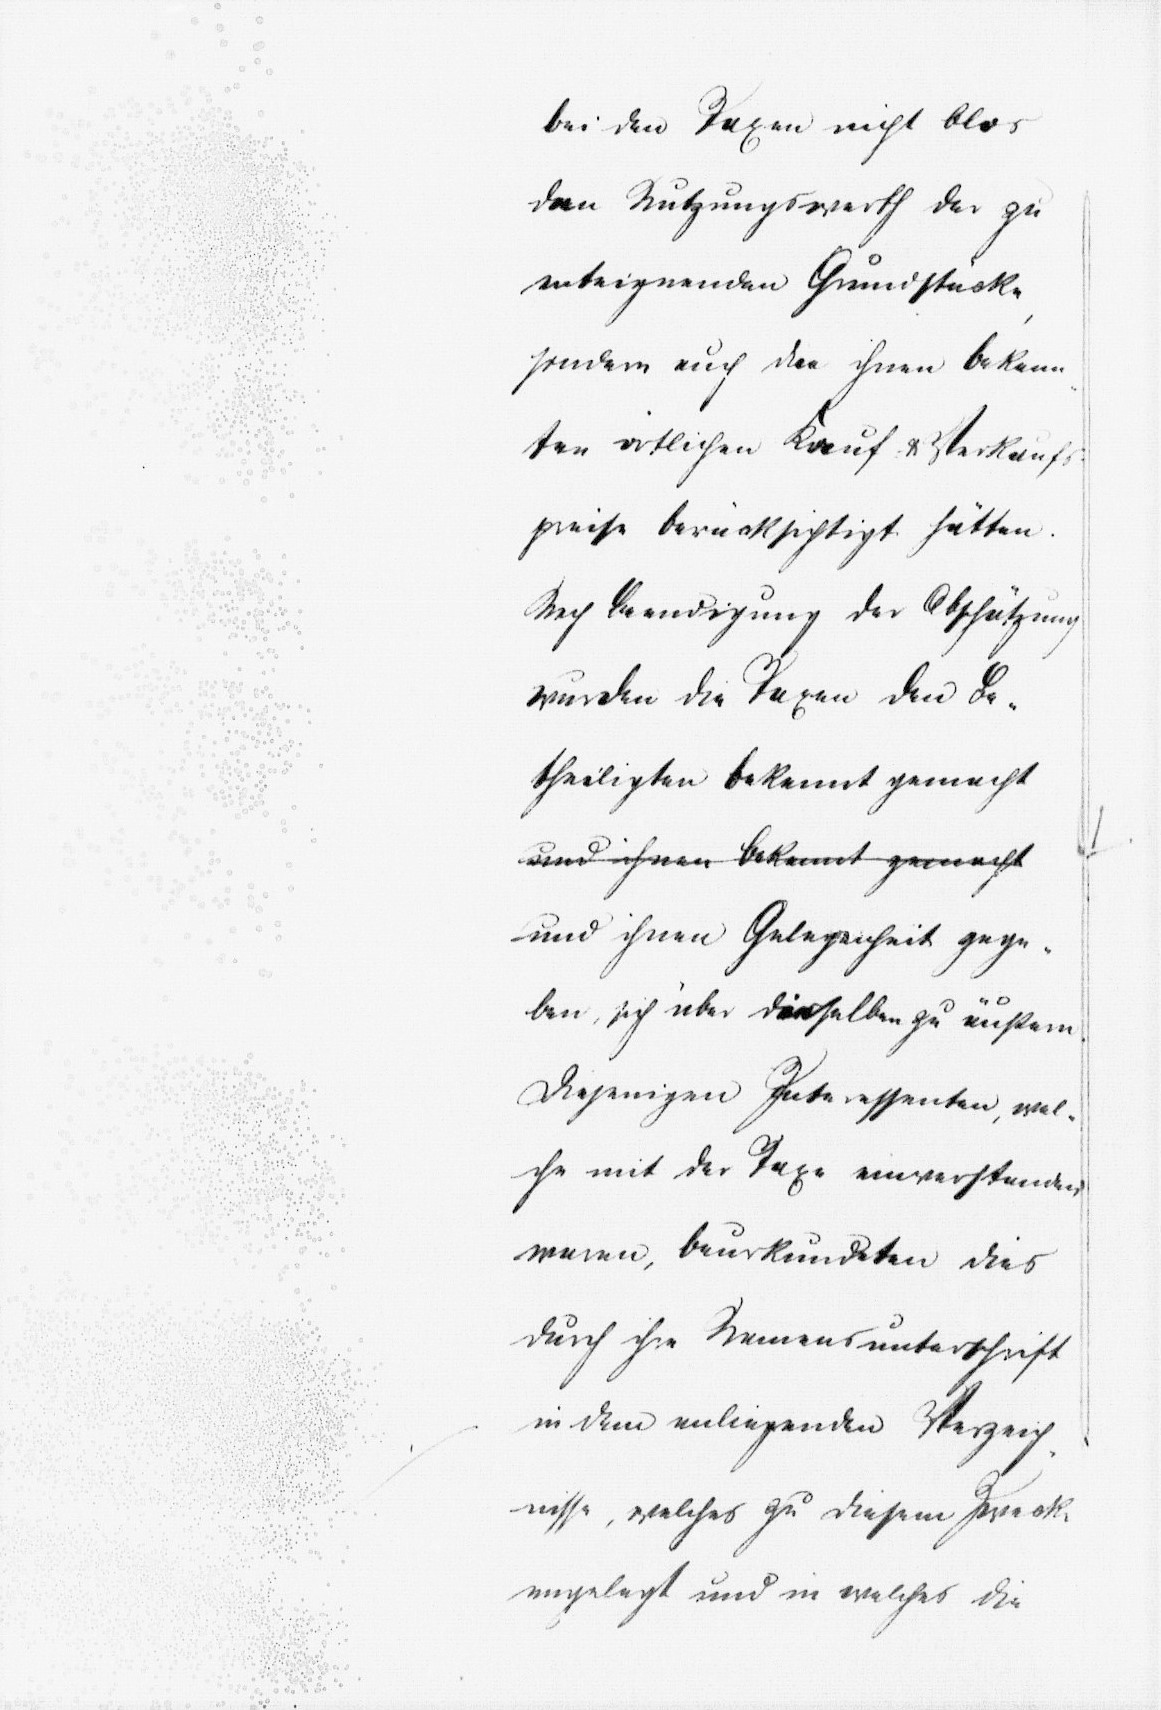 bei den Taxen nicht blos
den Nutzungswerth der zu
enteignenden Grundstücke,
sondern auch die ihnen bekann-
ten örtlichen Kauf- & Verkaufs-
preise berücksichtigt hätten.
Nach Beendigung der Abschätzung
wurden die Taxen den Be-
theiligten bekannt gemacht
und ihnen bekannt gemacht
und ihnen Gelegenheit gege-
ben, sich über dieselben zu äußern.
Diejenigen Interessenten, wel-
che mit der Taxe einverstanden
waren, beurkundeten dies
durch ihre Namensunterschrift
in dem anliegenden Verzeich-
nisse, welches zu diesem Zwecke
angelegt und in welches die